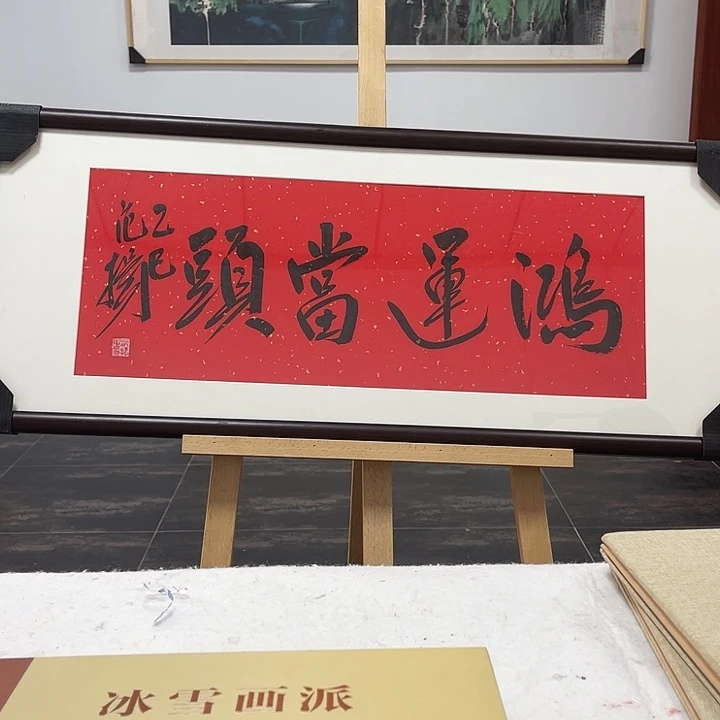 鴻運當頭
乙巳
冰雪画派